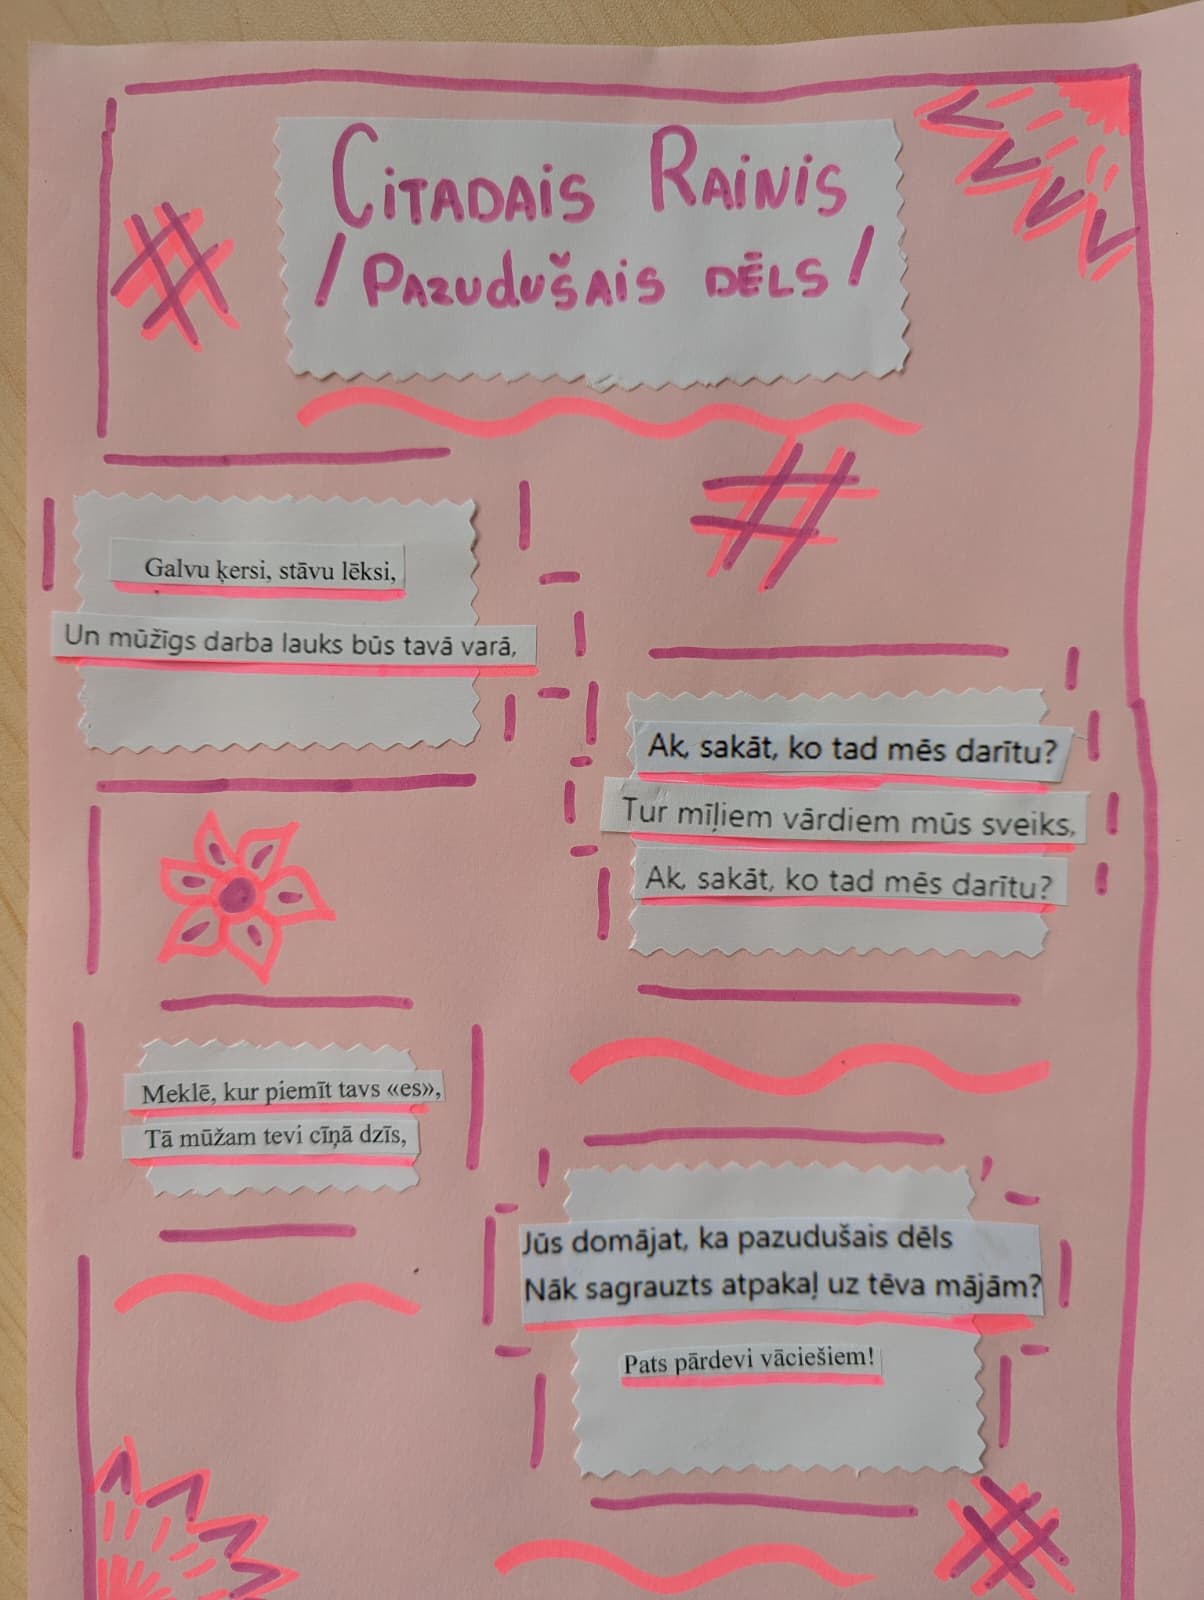 CITADAIS RAINIS
/PAZUDUŠAIS DĒLS/
Galvu ķersi, stāvu lēksi,
Un mūžīgs darba lauks būs tavā varā,
Ak, sakāt, ko tad mēs darītu?
Tur mīļiem vārdiem mūs sveiks,
Ak, sakāt, ko tad mēs darītu?
Meklē, kur piemīt tavs «es»,
Tā mūžam tevi cīņā dzīs,
Jūs domājat, ka pazudušais dēls
Nāk sagrauzts atpakaļ uz tēva mājām?
Pats pārdevi vāciešiem!